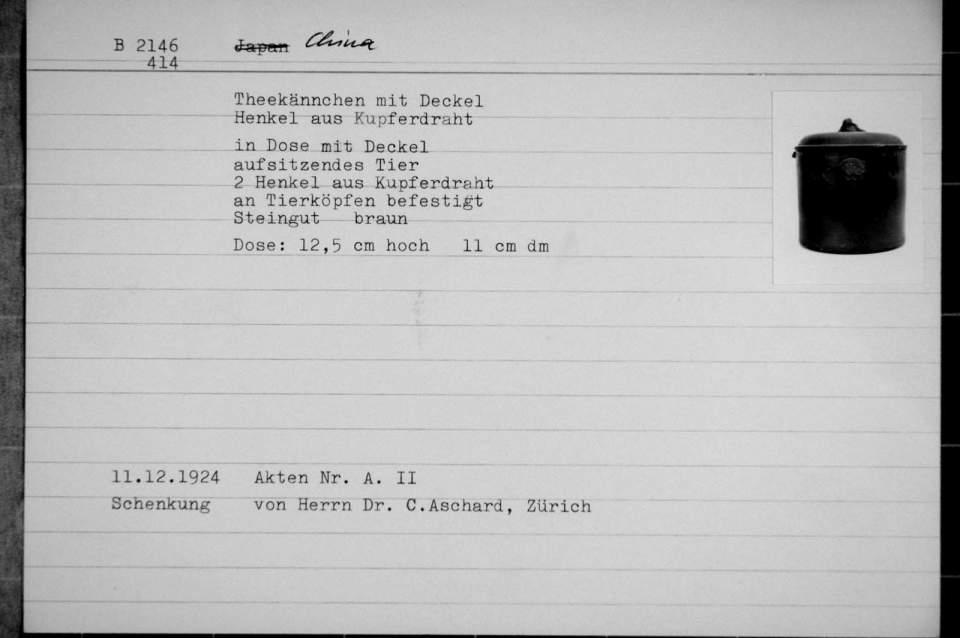 B 2146 Japan China
414
Theekännchen mit Deckel
Henkel aus Kupferdraht
in Dose mit Deckel
aufsitzendes Tier
2 Henkel aus Kupferdraht
an Tierköpfen befestigt
Steingut braun
Dose: 12,5 cm hoch 11 cm dm
11.12.1924 Akten Nr. A. II
Schenkung von Herrn Dr. C.Aschard, Zürich